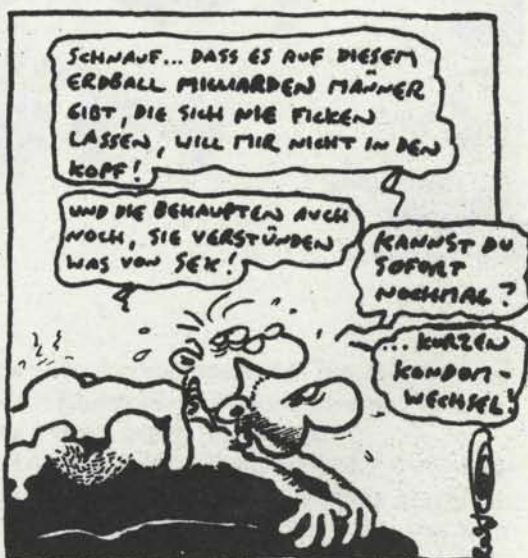 SCHNAUF... DASS ES AUF DIESEM
ERDBALL MILLIARDEN MÄNNER
GIBT, DIE SICH NIE FICKEN
LASSEN, WILL MIR NICHT IN DEN
KOPF!
UND DIE BEHAUPTEN AUCH
NOCH, SIE VERSTÜNDEN
WAS VON SEX!
KANNST DU
SOFORT
NOCHMAL?
... KURZEN
KONDOM-
WECHSEL!